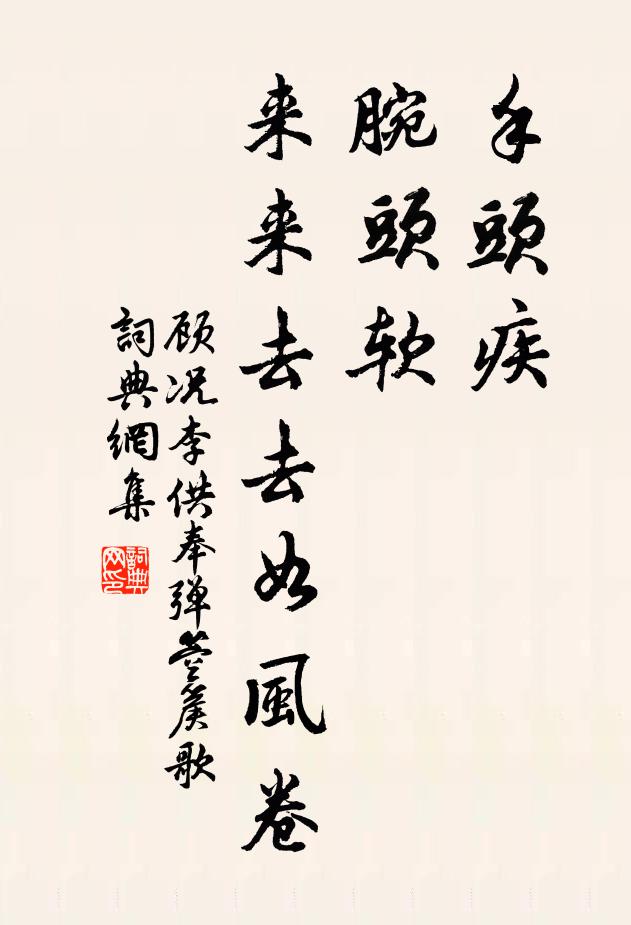 手頭疾
腕頭软
来来去去如風卷
顾况李供奉弹箜篌歌
詞典網集
詞典网印